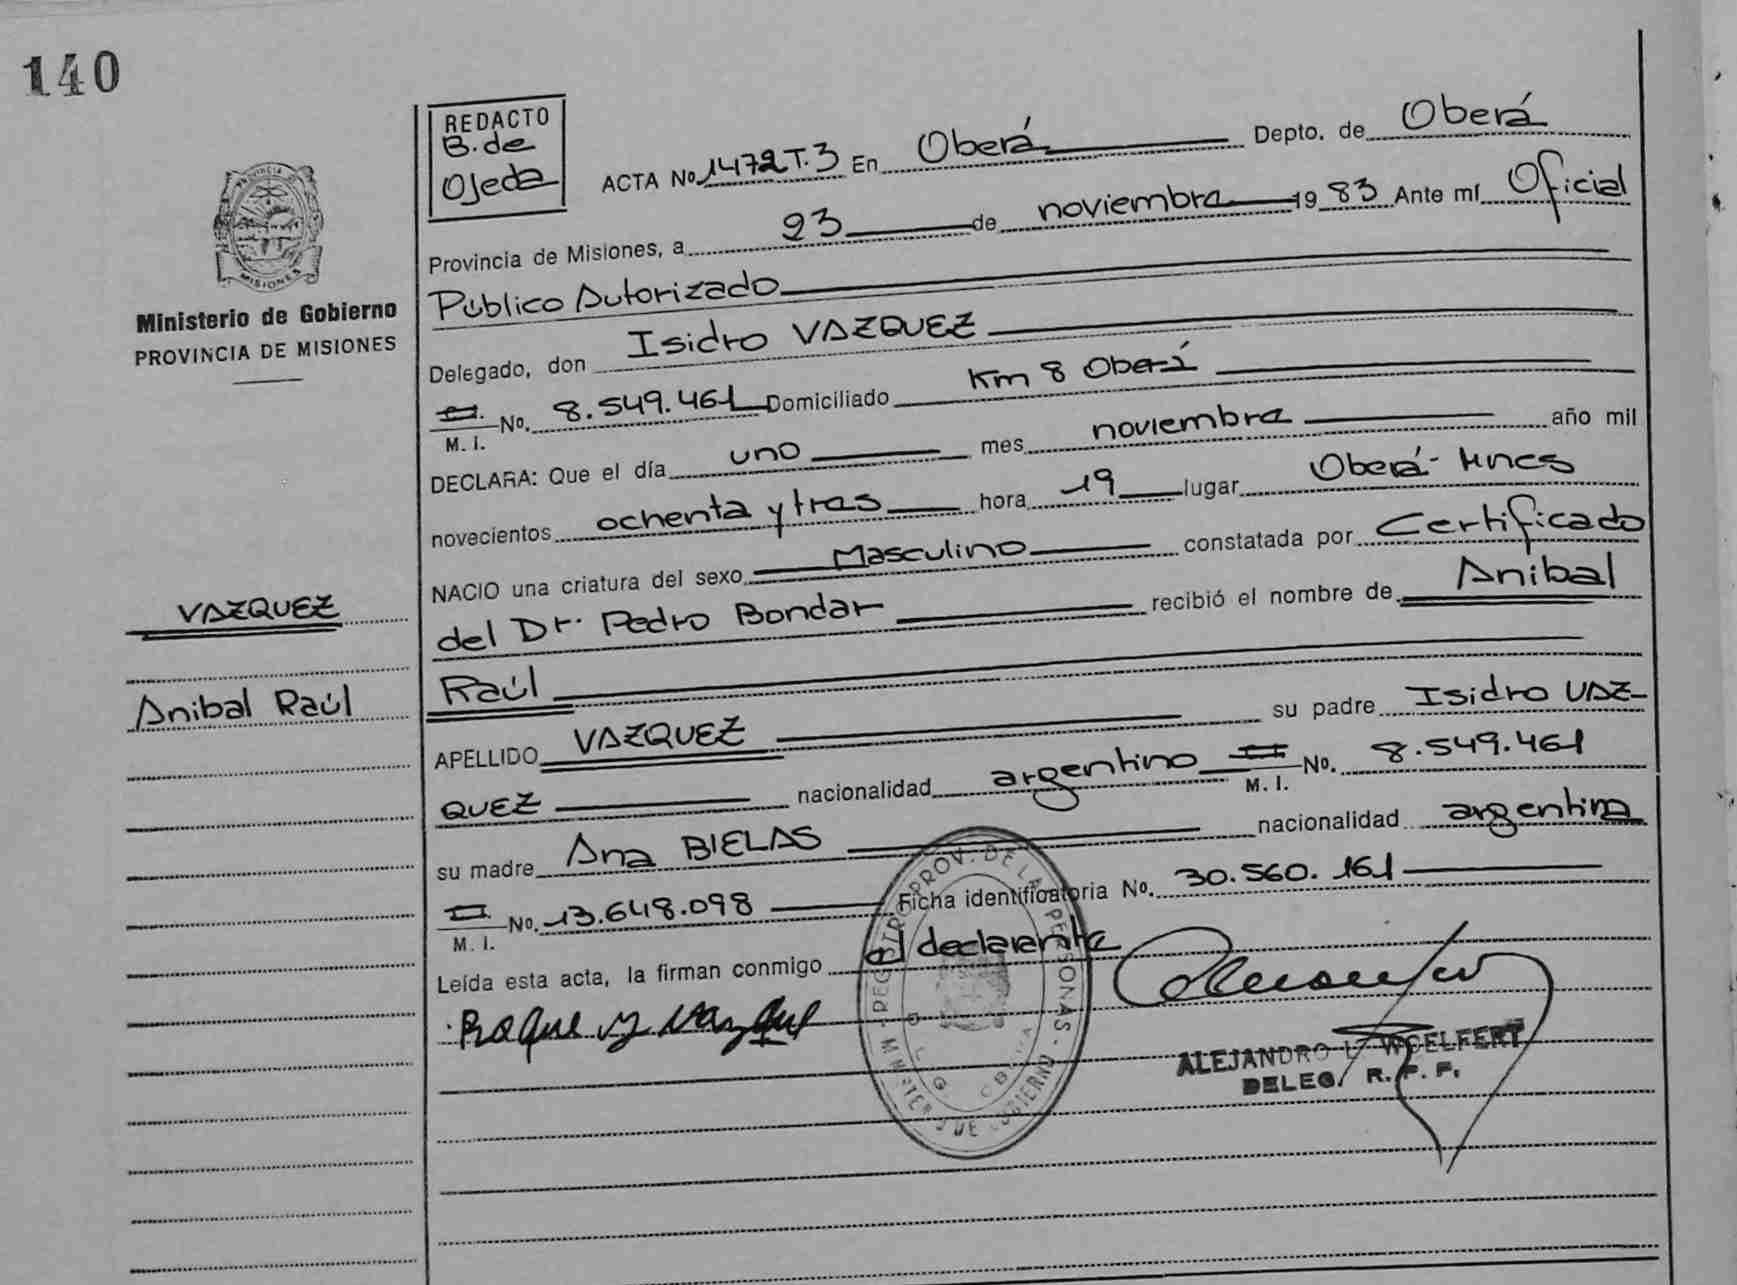 140
REDACTO
B. de
Ojeda
ACTA No 1472 T. 3 En Oberá Depto. de Oberá
Provincia de Misiones, a 23 de noviembre 19 83 Ante mí Oficial
Público Autorizado
Delegado, don Isidro VAZQUEZ
M. I. No. 8.549.461 Domiciliado Km 8 Oberá
DECLARA: Que el día uno mes noviembre año mil
novecientos ochenta y tres hora 19 lugar Oberá - Mnes
NACIO una criatura del sexo Masculino constatada por Certificado
del Dr. Pedro Bondar recibió el nombre de Anibal
Raúl
APELLIDO VAZQUEZ su padre Isidro VAZ-
QUEZ nacionalidad argentino M. I. No. 8.549.461
su madre Ana BIELAS nacionalidad argentina
M. I. No. 13.648.098 Ficha identificatoria No. 30.560.161
Leída esta acta, la firman conmigo el declarante
ALEJANDRO L. WOELFERT
DELEG. R. P. P.
PROVINCIA
MISIONES
Ministerio de Gobierno
PROVINCIA DE MISIONES
VAZQUEZ
Anibal Raúl
REGISTRO PROV. DE LA PERSONAS - MINISTERIO DE GOBIERNO